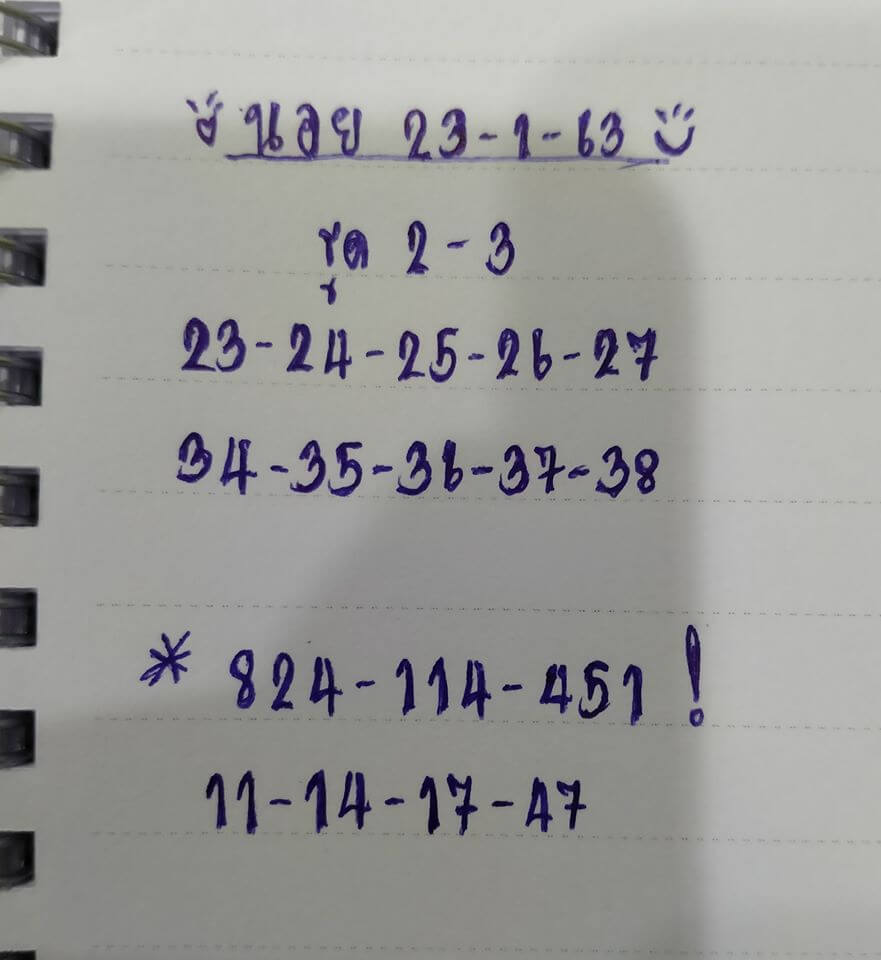 นอย 23-1-63
รูด 2-3
23-24-25-26-27
34-35-36-37-38
* 824-114-451!
11-14-17-47